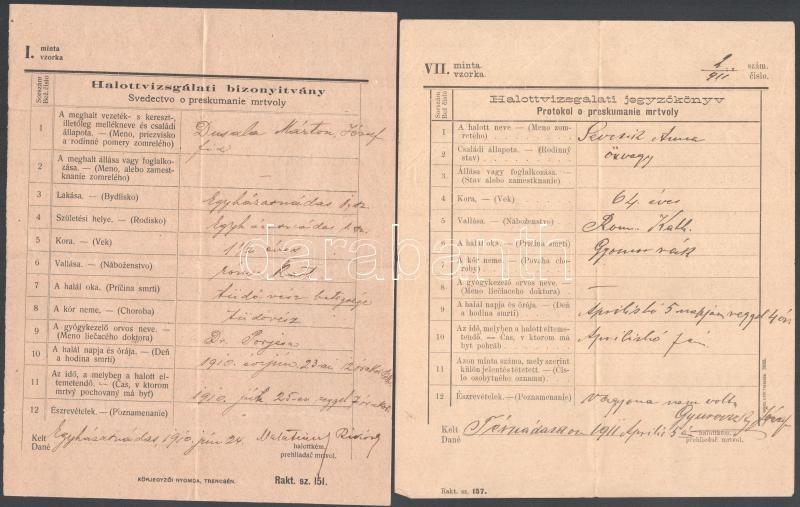 I. minta
vzorka
Halottvizsgálati bizonyitvány
Svedectvo o preskumanie mrtvoly
Sorszám
Bež. čislo
1 A meghalt vezeték- s kereszt-, illetőleg mellékneve és családi állapota. — (Meno, priezvisko a rodinné pomery zomrelého) Dusala Márton József
fia
2 A meghalt állása vagy foglalkozása. — (Meno, alebo zamestknanie zomrelého) —
3 Lakása. — (Bydlisko) Egyházasnádas
4 Születési helye. — (Rodisko) Egyházasnádas
5 Kora. — (Vek) éves
6 Vallása. — (Náboženstvo) rom. Kat.
7 A halál oka. (Pričina smrti) tüdővész betegsége
8 A kór neme. — (Choroba) tüdővész
9 A gyógykezelő orvos neve. — (Meno liečiaceho doktora) Dr.
10 A halál napja és órája. — (Deň a hodina smrti) 1910. évi jún. 23-ai
11 Az idő, a melyben a halott eltemetendő. — (Čas, v ktorom mrtvý pochovaný má byť) 1910. jún. 25-én reggel 7 órakor
12 Észrevételek. — (Poznamenanie)
Kelt
Dané Egyházasnádas, 1910. jún 24.
halottkém.
prehliadač mrtvol.
KÖRJEGYZŐI NYOMDA, TRENCSÉN. Rakt. sz. 151.
VII. minta
vzorka
911 szám.
čislo.
Halottvizsgálati jegyzőkönyv
Protokol o preskumanie mrtvoly
Sorszám
Bež. čislo
1 A halott neve. — (Meno zomretého) Sevcsik Anna
2 Családi állapota. — (Rodinný stav) özvegy
3 Állása vagy foglalkozása. — (Stav alebo zamestknanie)
4 Kora, — (Vek) 64 éves
5 Vallása. — (Náboženstvo) Rom. Kath.
6 A halál oka. — (Pričina smrti) Gyomor rák
7 A kór neme. — (Povaha choroby)
8 A gyógykezelő orvos neve. — (Meno liečiaceho doktora) —
9 A halál napja és órája. — (Deň a hodina smrti) Aprilishó 5 napján reggel 4 óra
10 Az idő, melyben a halott eltemetendő. — (Čas, v ktorom má byť pohrab) Aprilishó
11 Azon minta száma, mely szerint külön jelentés tétetett. — (Čislo osobytného oznamu)
12 Észrevételek. — (Poznamenanie) vagyona nem volt
Kelt
Dané 1911 Aprilis 5
halottkém,
prehliadač mrtvol.
Rakt. sz. 157.
darabanth.com